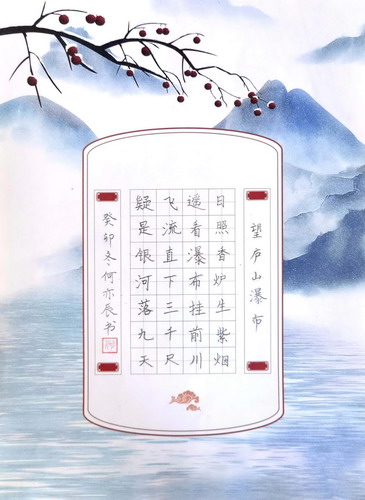 望庐山瀑布
日照香炉生紫烟
遥看瀑布挂前川
飞流直下三千尺
疑是银河落九天
癸卯冬何亦辰书